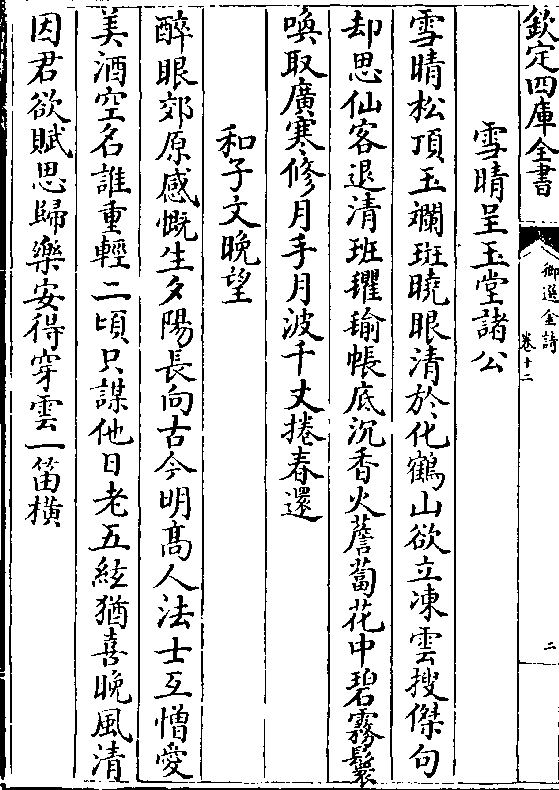 欽定四庫全書
御選金詩
卷十二
二
雪晴呈玉堂諸公
雪晴松頂玉斓斑曉眼清於化鶴山欲立凍雲搜傑句
却思仙客退清班瓘瑜帳底沉香火薝蔔花中碧霧鬟
喚取廣寒修月手月波千丈捲春還
和子文晚望
醉眼郊原感慨生夕陽長向古今明髙人法士互憎愛
美酒空名誰重輕二頃只謀他日老五絃猶喜晚風清
因君欲賦思歸樂安得穿雲一笛橫